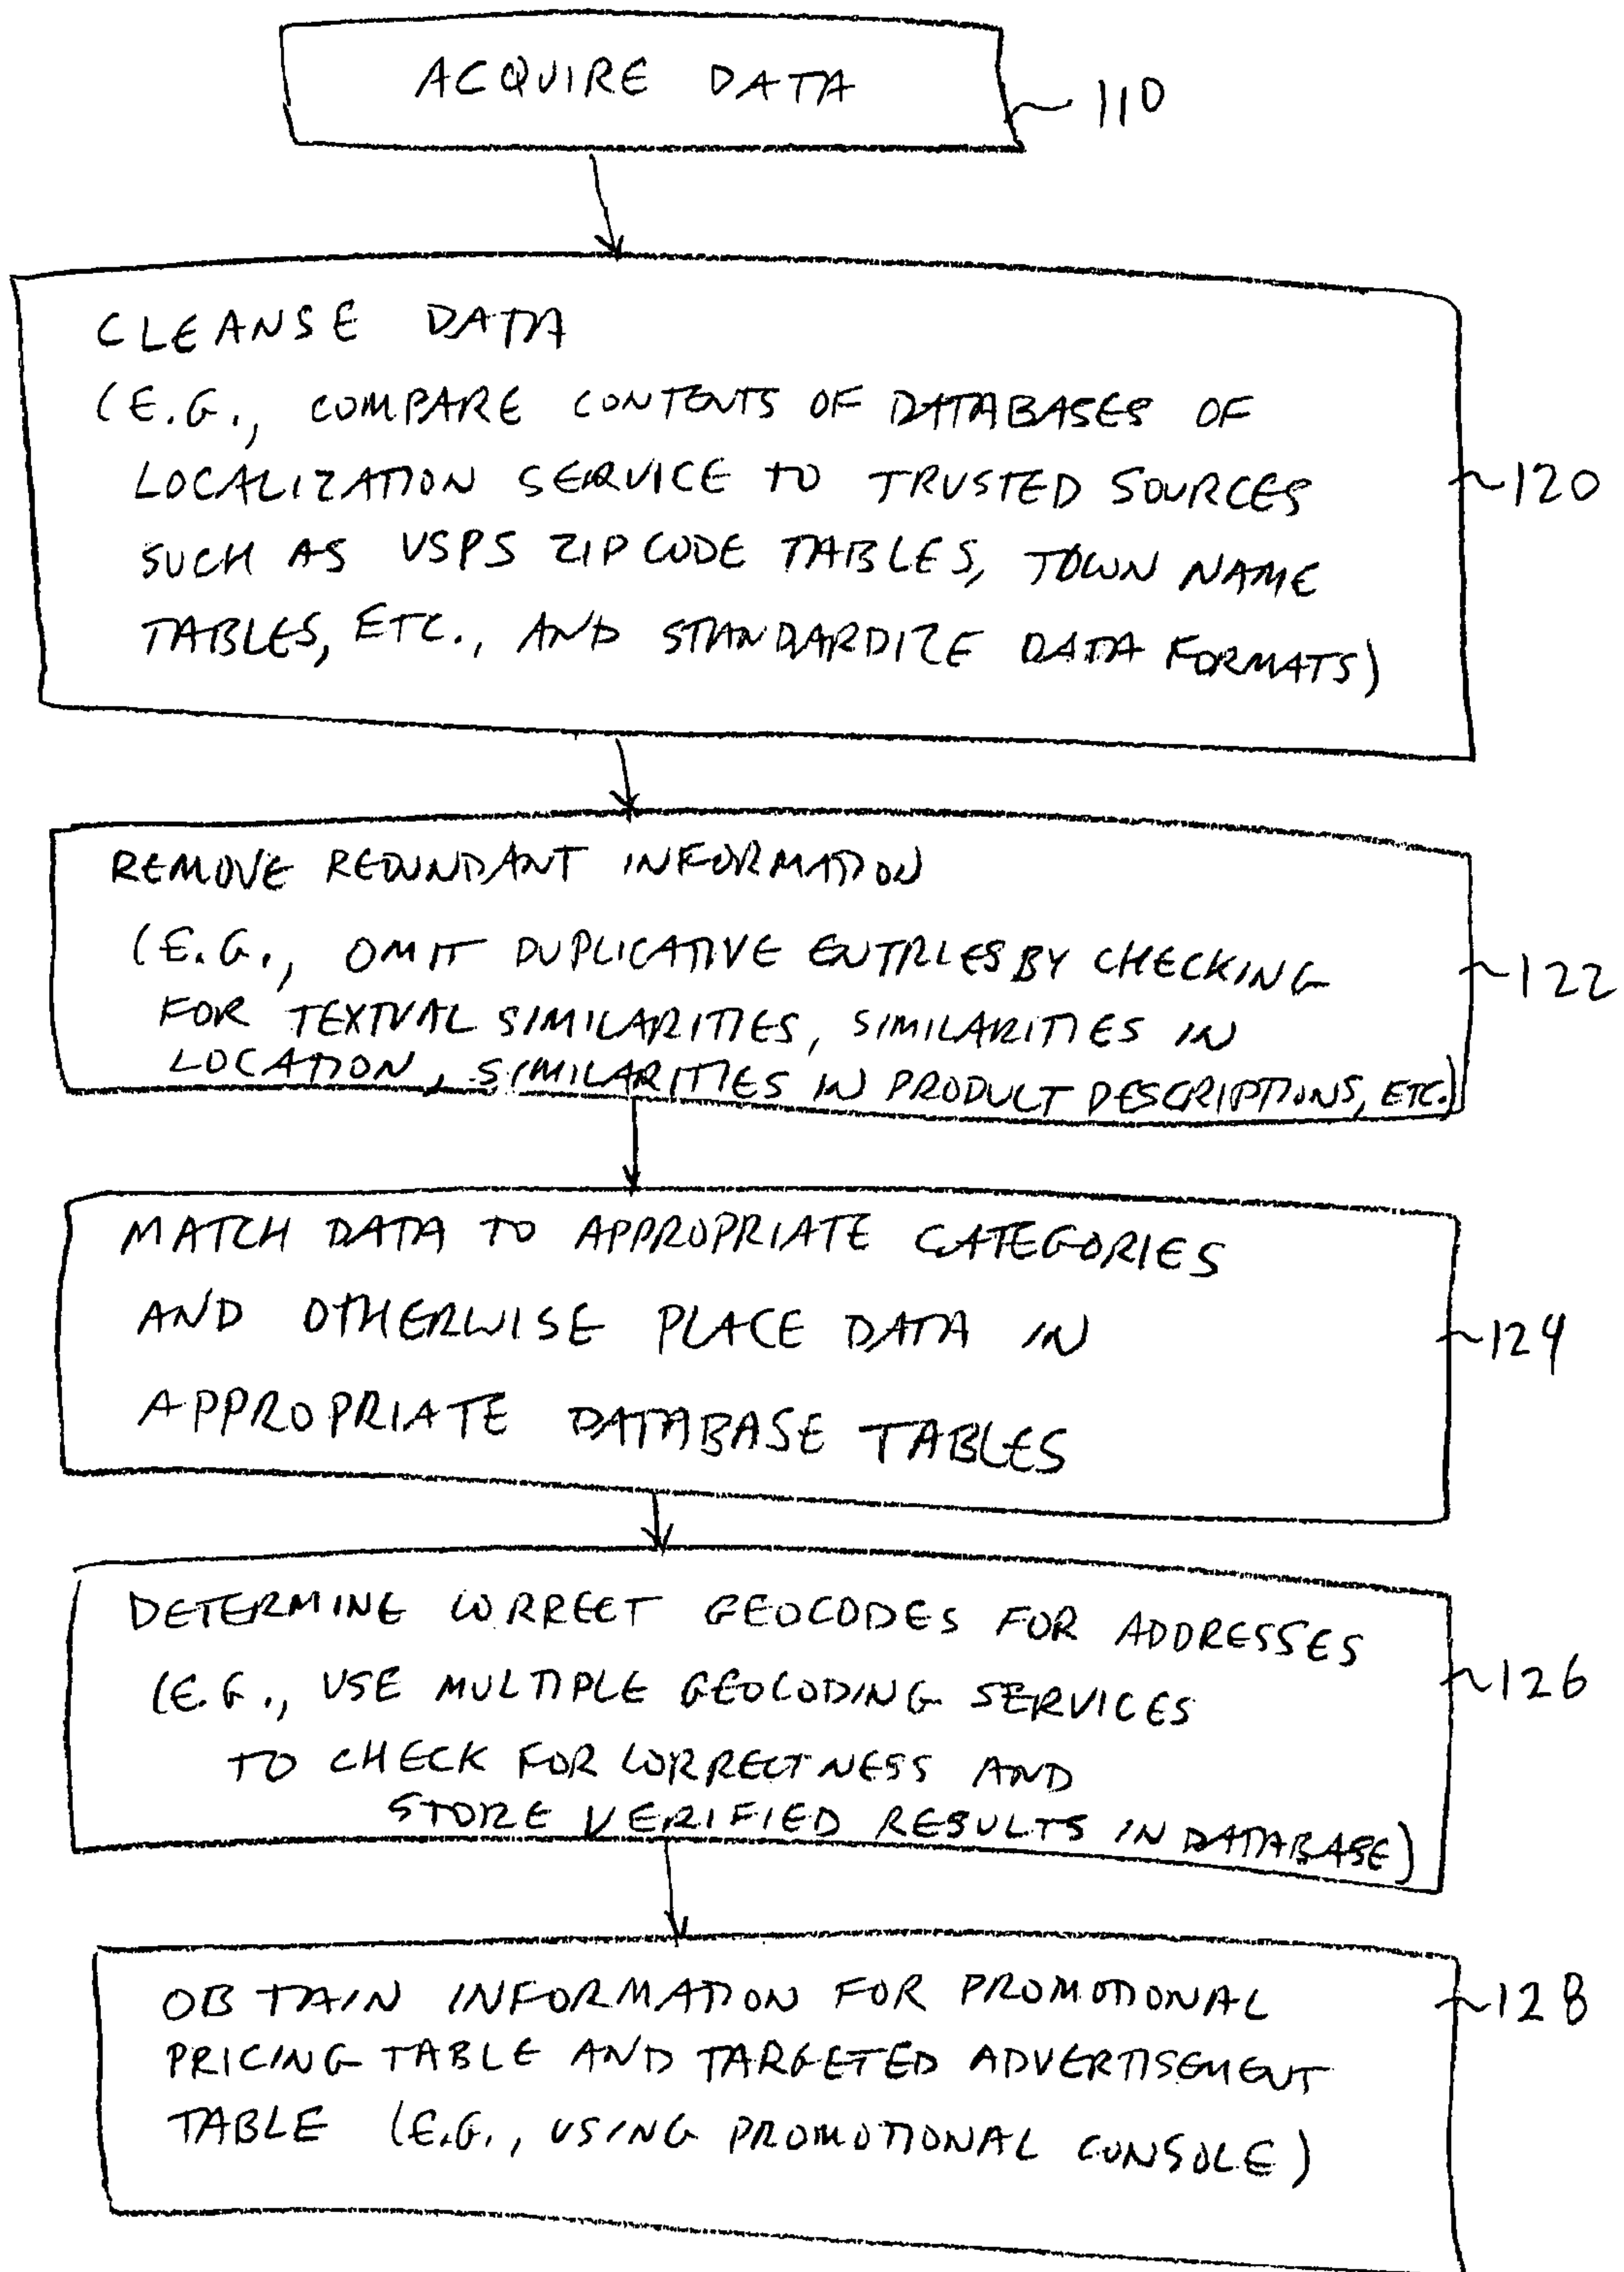 ACQUIRE DATA
110
CLEANSE DATA
(E.G., COMPARE CONTENTS OF DATABASES OF
LOCALIZATION SERVICE TO TRUSTED SOURCES
120
SUCH AS USPS ZIP CODE TABLES, TOWN NAME
TABLES, ETC., AND STANDARDIZE DATA FORMATS)
REMOVE REDUNDANT INFORMATION
(E.G., OMIT DUPLICATIVE ENTRIES BY CHECKING
122
FOR TEXTUAL SIMILARITIES, SIMILARITIES IN
LOCATION, SIMILARITIES IN PRODUCT DESCRIPTIONS, ETC.)
MATCH DATA TO APPROPRIATE CATEGORIES
AND OTHERWISE PLACE DATA IN
124
APPROPRIATE DATABASE TABLES
DETERMINE CORRECT GEOCODES FOR ADDRESSES
(E.G., USE MULTIPLE GEOCODING SERVICES
126
TO CHECK FOR CORRECTNESS AND
STORE VERIFIED RESULTS IN DATABASE)
OBTAIN INFORMATION FOR PROMOTIONAL
128
PRICING TABLE AND TARGETED ADVERTISEMENT
TABLE (E.G., USING PROMOTIONAL CONSOLE)